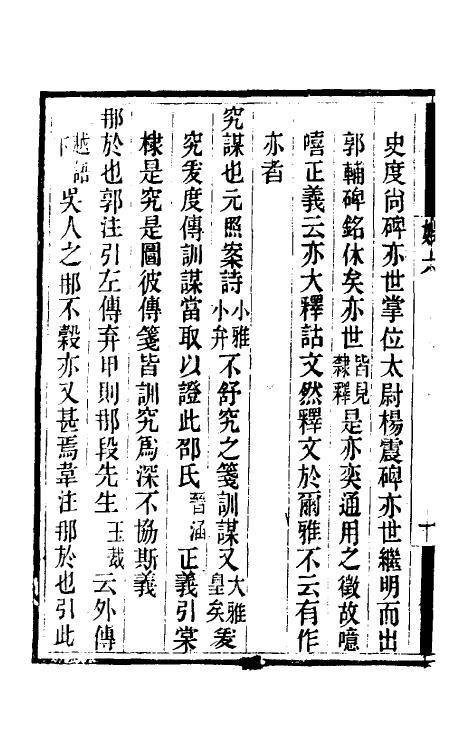 史度尚碑亦世掌位太尉楊震碑亦世繼明而出
郭輔碑銘休矣亦世皆見隸釋是亦奕通用之徵故噫
嘻正義云亦大釋詁文然釋文於爾雅不云有作
亦者
究謀也元照案詩小雅小弁不舒究之箋訓謀又大雅皇矣爰
究爰度傳訓謀當取以證此邵氏晉涵正義引棠
棣是究是圖彼傳箋皆訓究爲深不協斯義
那於也郭注引左傳弃甲則那段先生玉裁云外傳
越語下吳人之那不穀亦又甚焉韋注那於也引此